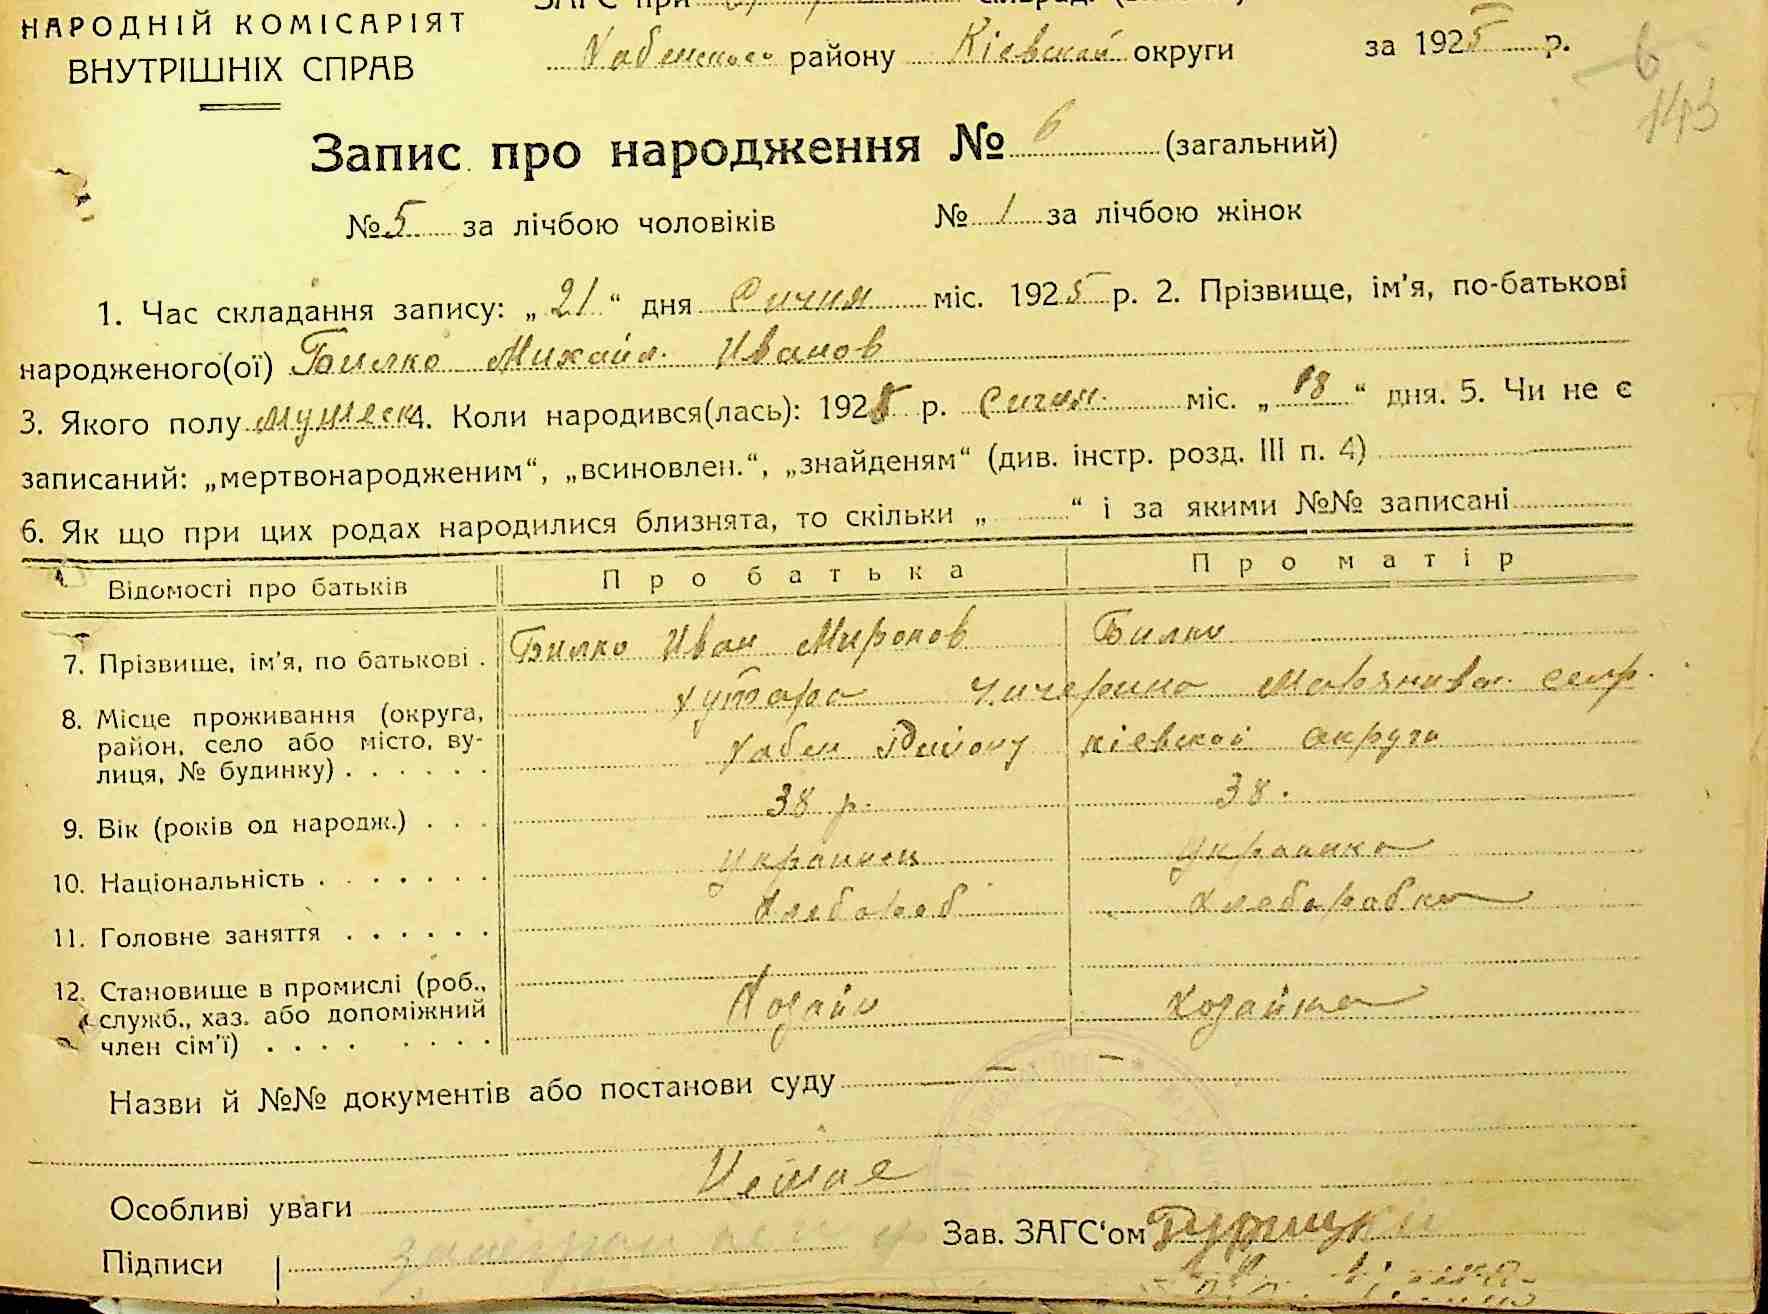 НАРОДНІЙ КОМІСАРІЯТ
ВНУТРІШНІХ СПРАВ
ЗАГС при
Хабенского району Кіевской округи за 1925 р.
6
143
Запис про народження № 6 (загальний)
№ 5 за лічбою чоловіків № 1 за лічбою жінок
1. Час складання запису: „21“ дня Сичня міс. 1925 р. 2. Прізвище, ім’я, по-батькові
народженого(ої) Билко Михайл Иванов
3. Якого полу мужеск 4. Коли народився(лась): 1925 р. Сичня міс. „18“ дня. 5. Чи не є
записаний: „мертвонародженим“, „всиновлен.“, „знайденям“ (див. інстр. розд. III п. 4)
6. Як що при цих родах народилися близнята, то скільки „ “ і за якими №№ записані
Відомості про батьків Про батька Про матір
7. Прізвище, ім’я, по батькові . Билко Иван Миронов Билко
8. Місце проживання (округа, район, село або місто, вулиця, № будинку) . . . . . . хутора Чичерино селр.
Хабен району кіевской округи
9. Вік (років од народж.) . . . 38 р. 38.
10. Національність . . . . . . . украинец украинка
11. Головне заняття . . . . . . хлебороб хлеборобка
12. Становище в промислі (роб., служб., хаз. або допоміжний член сім’ї) . . . . . . . . Хозайн хозайка
Назви й №№ документів або постанови суду —
Особливі уваги Немае
Зав. ЗАГС‘ом
Підписи